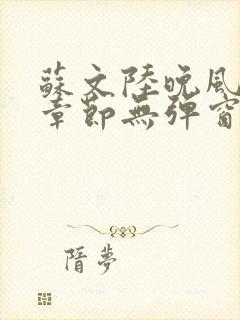 蘇文陸晚風
章節無彈窗
隋夢